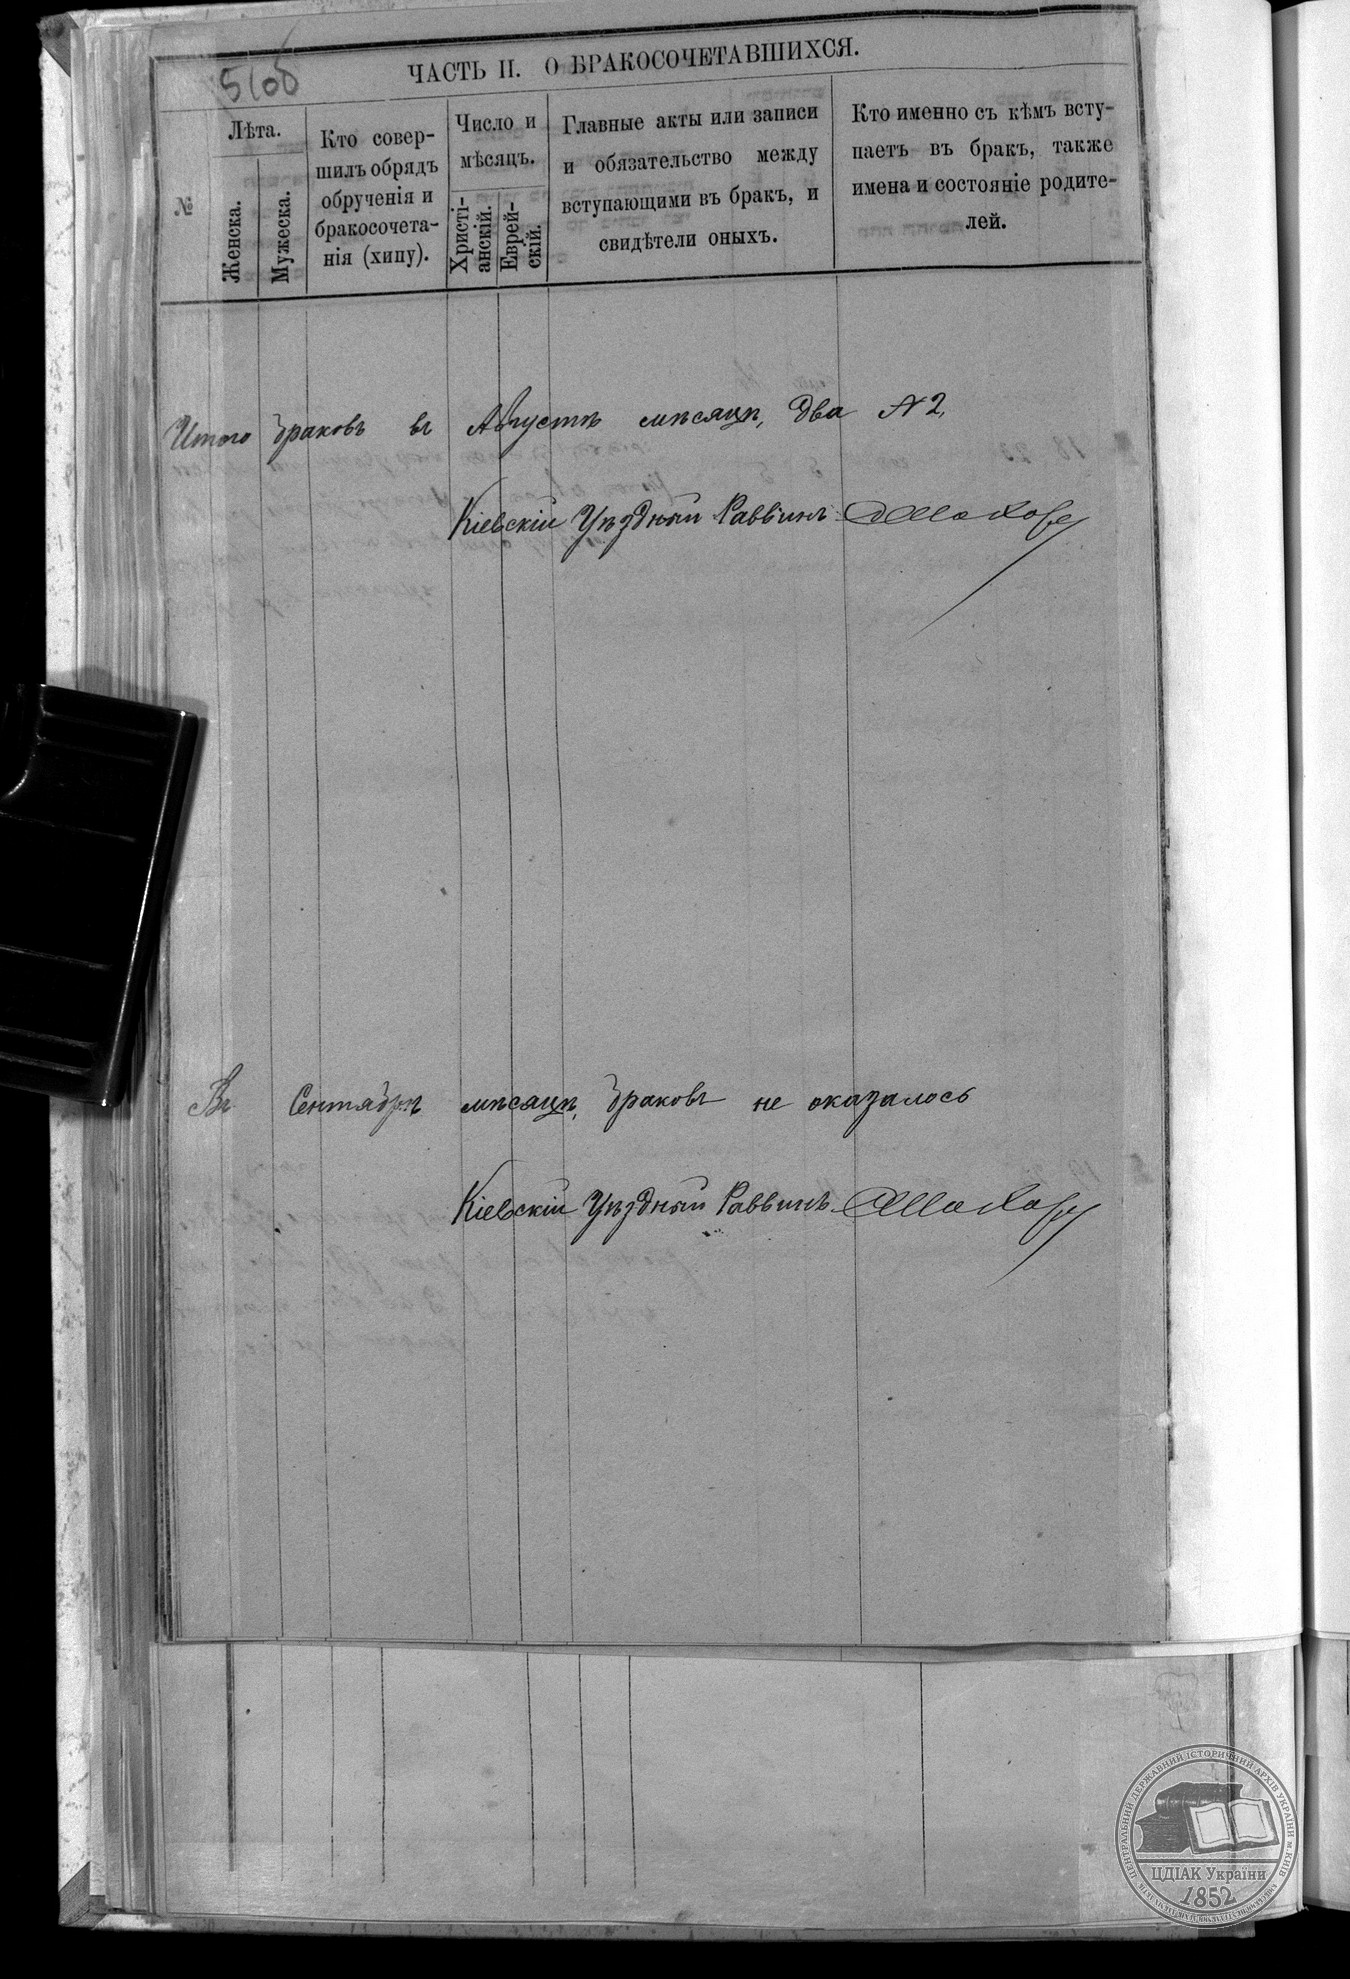 51об
ЧАСТЬ II. О БРАКОСОЧЕТАВШИХСЯ.
№
Лѣта.
Женска.
Мужеска.
Кто совер-
шилъ обрядъ
обрученія и
бракосочета-
нія (хипу).
Число и
мѣсяцъ.
Христі-
анскій.
Еврей-
скій.
Главные акты или записи
и обязательство между
вступающими въ бракъ, и
свидѣтели оныхъ.
Кто именно съ кѣмъ всту-
паетъ въ бракъ, также
имена и состояніе родите-
лей.
Итого браковъ въ Августѣ мѣсяцѣ, два № 2,
Кіевскій Уѣздный Раввинъ
Въ Сентябрѣ мѣсяцѣ, браковъ не оказалось
Кіевскій Уѣздный Раввинъ
ЦЕНТРАЛЬНИЙ ДЕРЖАВНИЙ ІСТОРИЧНИЙ АРХІВ УКРАЇНИ м. КИЇВ
ЦДІАК України
1852